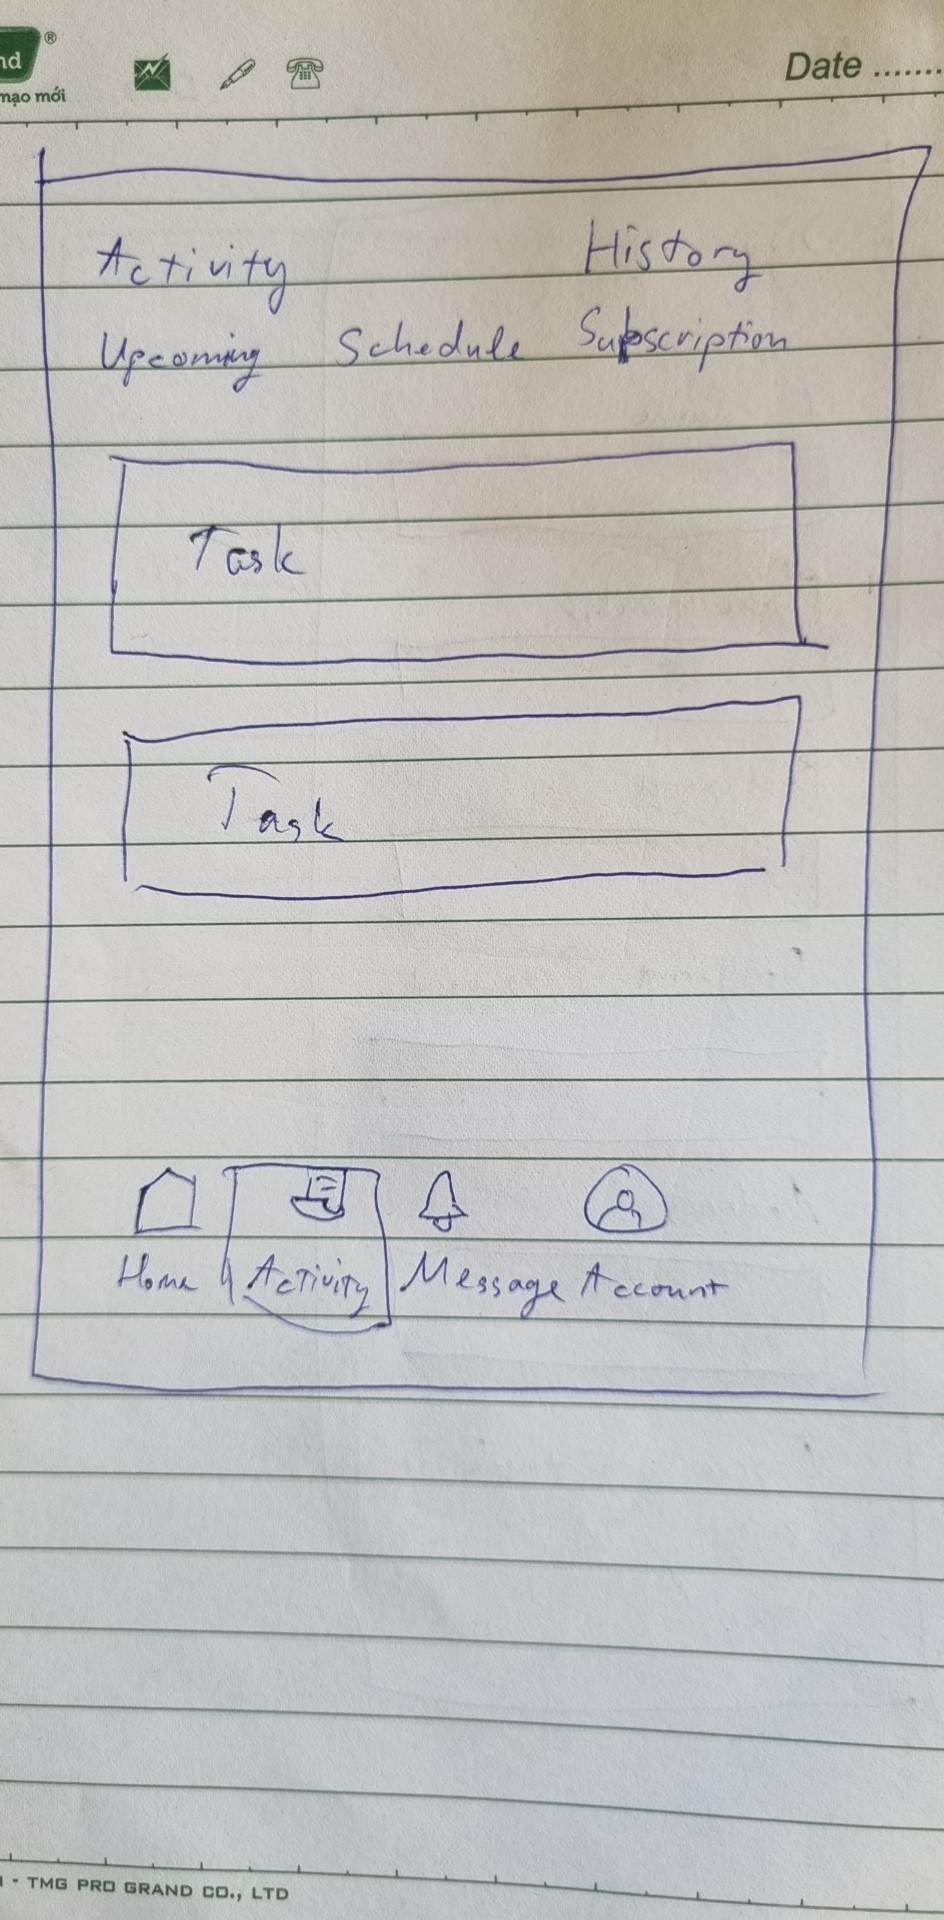 nd ®
mạo mới
Date .......
Activity History
Upcoming Schedule Subscription
Task
Task
Home Activity Message Account
- TMG PRO GRAND CO., LTD